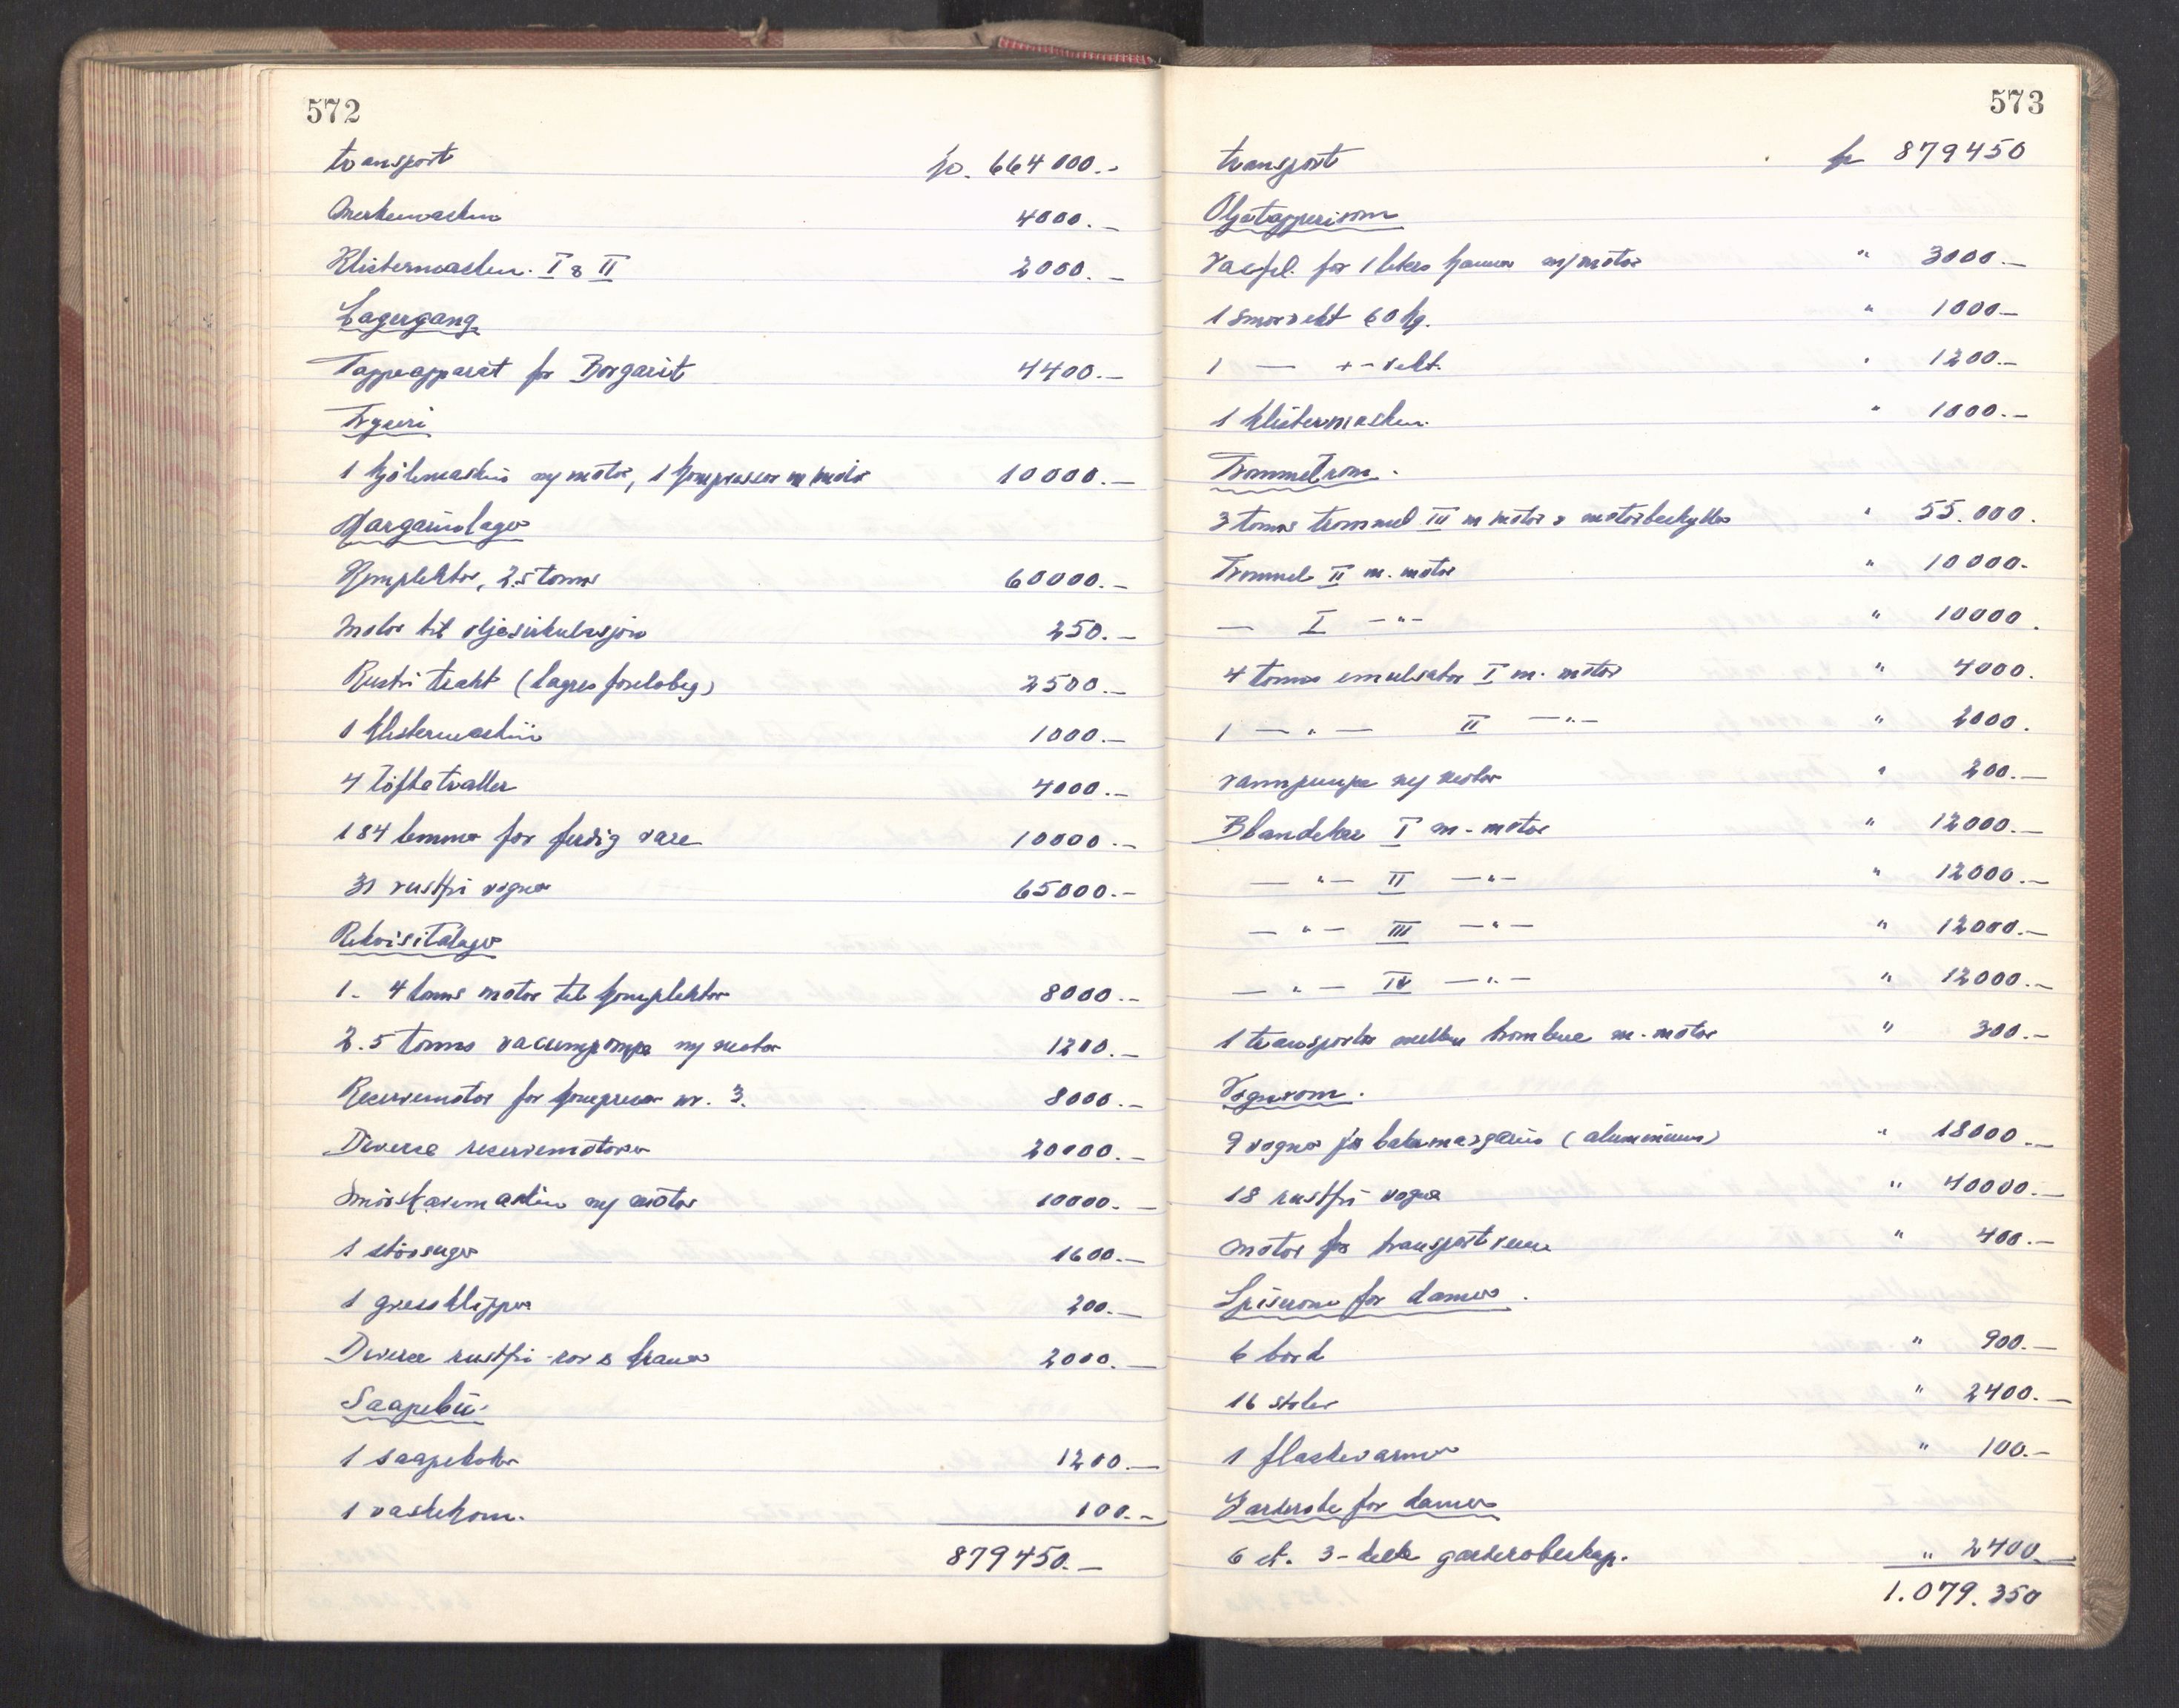 572
transport kr. 664000.-
Merkemaskin 4000.-
Klistermaskin. I & II 2000.-
Lagergang
Tappeapparat for Borgarit 4400.-
Fryseri
1 kjölemaskin m/motor, 1 kompressor m/motor 10000.-
Margarinlager
Komplektor, 2.5 tonns 60000.-
Motor til oljesirkulasjon 250.-
Rustfri trakt (lagres foreløbig) 2500.-
1 klistermaskin 1000.-
4 löftetraller 4000.-
184 lemmer for ferdig vare 10000.-
31 rustfri vogner 65000.-
Rekvisitalager
1. 4 tonns motor til komplektor 8000.-
2.5 tonns vacumpompe m/motor 1200.-
Reservemotor for kompressor nr. 3. 8000.-
Diverse reservemotorer 20000.-
Smörskjæremaskin m/motor 10000.-
1 stövsuger 1600.-
1 gressklipper 200.-
Diverse rustfri-rör & kraner 2000.-
Saapebu
1 saapekoker 1200.-
1 vaskekom. 100.-
879450.-
573
transport kr 879450
Oljetapperirom
Vacfyl. for 1 liters kanner m/motor " 3000.-
1 Smørvekt 60 kg. " 1000-
1 — +-vekt. " 1200.-
1 klistermaskin. " 1000.-
Trommelrom.
3 tonns trommel III m motor & motorbeskytter " 55.000.
Trommel II m. motor " 10000.
— I -"- " 10000.
4 tonns emulsator I m. motor " 4000.
1 —"— II —"— " 2000.
vannpumpe m/motor " 200.-
Blandekar I m-motor " 12000.-
—"— II —"— " 12000.-
—"— III —"— " 12000.-
—"— IV —"— " 12000.-
1 transportør mellem tromlene m-motor " 300.-
Vognrom.
9 vogner for bakermargarin (aluminium) " 18000.-
18 rustfri vogner " 40000.-
motor for transportrenne " 400.-
Spiserom for damer.
6 bord " 900.-
16 stoler " 2400.-
1 flaskevarmer " 100.-
Garderobe for damer
6 st. 3-delte garderobeskap. " 2400.-
1.079.350